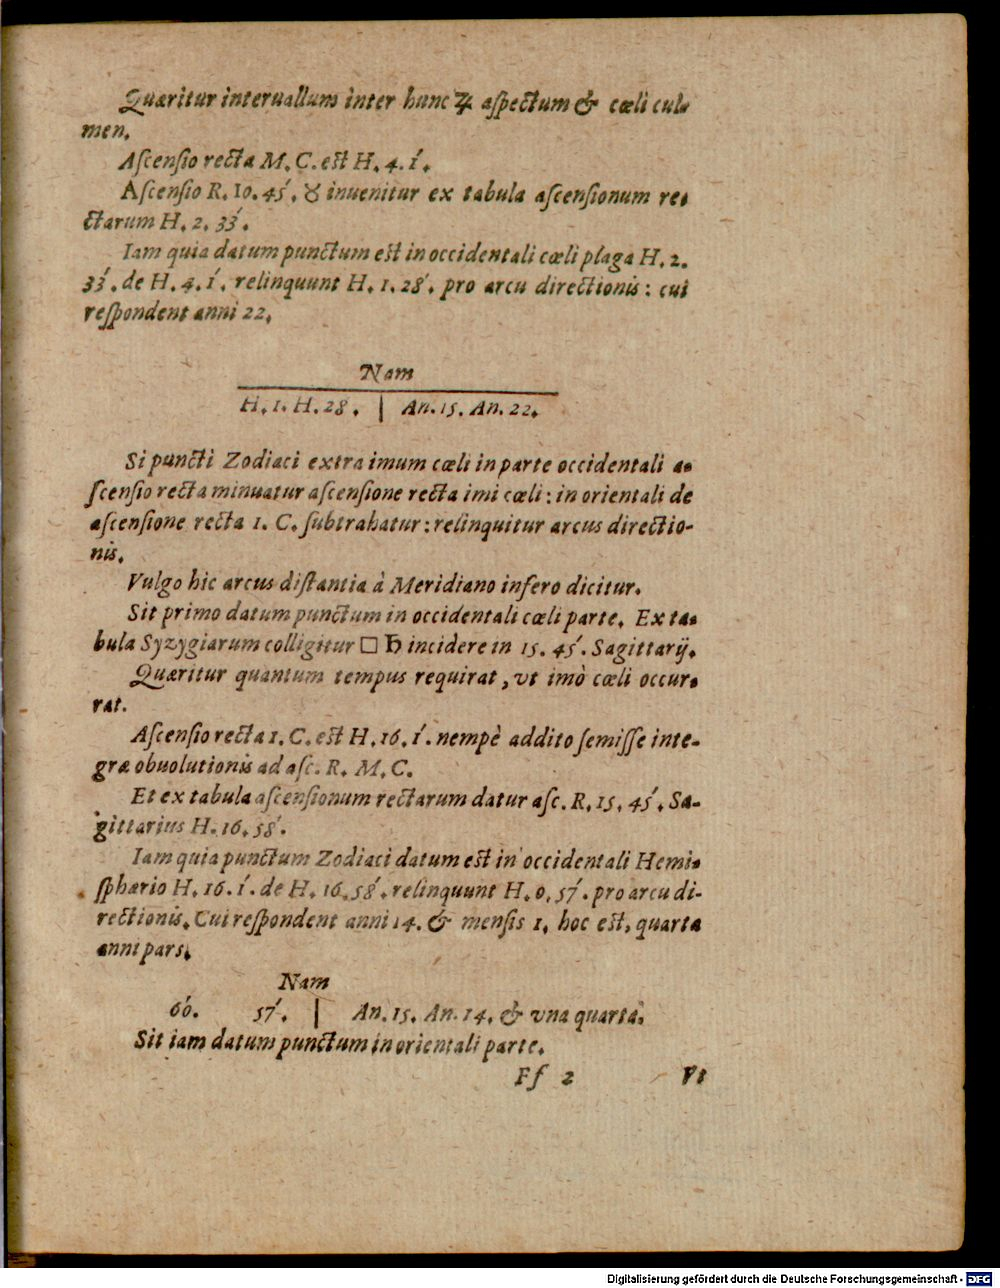 Quæritur interuallum inter hunc ♃ aſpectum & cœli cul-
men.
Aſcenſio recta M. C. est H. 4. 1́.
Aſcenſio R. 10. 45́. ♉ inuenitur ex tabula aſcenſionum re-
ctarum H. 2. 33́.
Iam quia datum punctum est in occidentali cœli plaga H. 2.
33́. de H. 4. 1́. relinquunt H. 1. 28́. pro arcu directionis: cui
reſpondent anni 22.
Nam
H. 1. H. 28. | An. 15. An. 22.
Si puncti Zodiaci extra imum cœli in parte occidentali a-
ſcenſio recta minuatur aſcenſione recta imi cœli: in orientali de
aſcenſione recta 1. C. ſubtrahatur: relinquitur arcus directio-
nis.
Vulgo hic arcus diſtantia à Meridiano infero dicitur.
Sit primo datum punctum in occidentali cœli parte. Ex ta-
bula Syzygiarum colligitur □ ♄ incidere in 15. 45́. Sagittarij.
Quæritur quantum tempus requirat, vt imò cœli occur-
rat.
Aſcenſio recta 1. C. est H. 16. 1́. nempè addito ſemiſſe inte-
græ obuolutionis ad aſc. R. M. C.
Et ex tabula aſcenſionum rectarum datur aſc. R. 15. 45́. Sa-
gittarius H. 16. 58́.
Iam quia punctum Zodiaci datum est in occidentali Hemi-
ſphærio H. 16. 1́. de H. 16. 58́. relinquunt H. 0. 57́. pro arcu di-
rectionis. Cui reſpondent anni 14. & menſis 1. hoc est, quarta
anni pars.
Nam
60́. 57́. | An. 15. An. 14. & vna quarta.
Sit iam datum punctum in orientali parte.
Ff 2 Vt
Digitalisierung gefördert durch die Deutsche Forschungsgemeinschaft - DFG